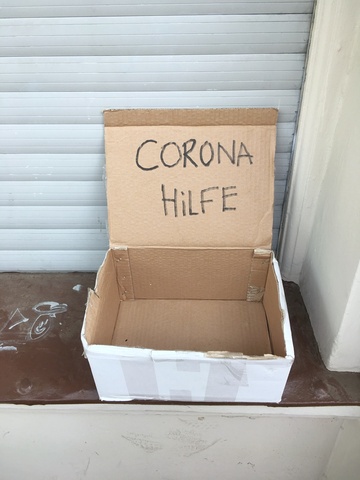 CORONA
HiLFE